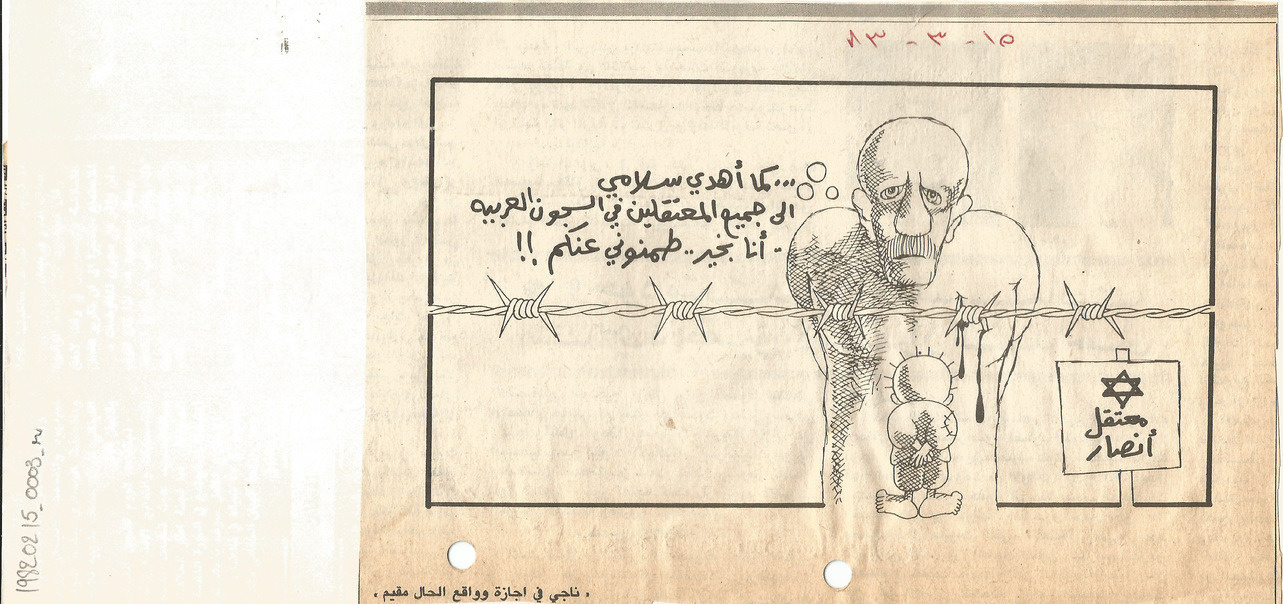 ١٥-٣-٨٣
...كما أهدي سلامي
الى جميع المعتقلين في السجون العربيه
- أنا بخير.. طمنوني عنكم !!
معتقل
أنصار
« ناجي في اجازة وواقع الحال مقيم »